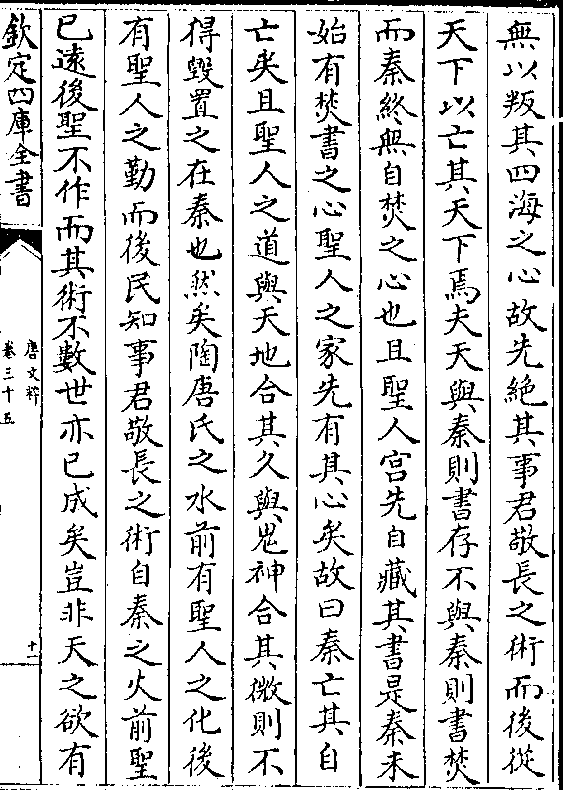 無以叛其四海之心故先絶其事君敬長之術而後從
天下以亡其天下焉夫天與秦則書存不與秦則書焚
而秦終無自焚之心也且聖人宫先自藏其書是秦未
始有焚書之心聖人之家先有其心矣故曰秦亡其自
亡矣且聖人之道與天地合其久與鬼神合其微則不
得毀置之在秦也然矣陶唐氏之水前有聖人之化後
有聖人之勤而後民知事君敬長之術自秦之火前聖
已遠後聖不作而其術不數世亦已成矣豈非天之欲有
欽定四庫全書
唐文粹
卷三十五
十一